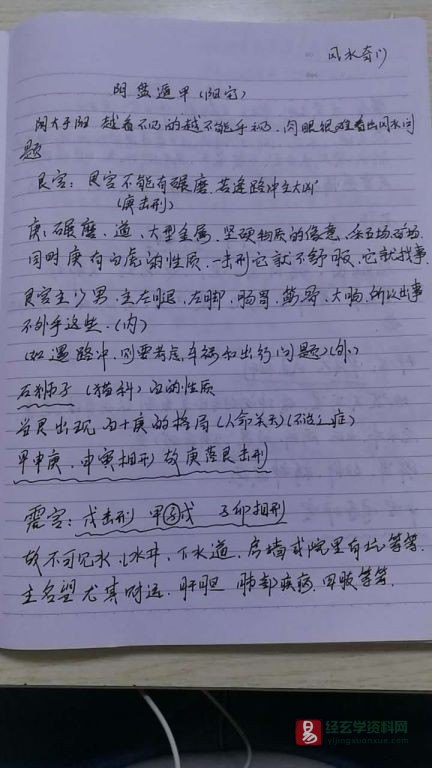 风水奇门
阴盘遁甲(阳宅)
阴大于阳 越看不见的越不能乎视,肉眼很难看出风水问
题
艮宫:艮宫不能有碾磨,若逢路冲主大凶
(庚击刑)
庚:碾磨、道、大型金属、坚硬物质的像意、
同时庚有白虎的性质.一击刑它就不舒服,它就找事
艮宫主少男,主左腿,左脚,肠胃,大肠,所以出事
不外乎这些.(内)
(如遇路冲,则要考虑车祸和出行问题)(外)
石狮子(猫科)
宫里出现 丙+庚的格局(人命关天)
甲申庚,申寅相刑 故庚落艮击刑
震宫:戊击刑 甲子戊 子卯相刑
故不可见水,(水井,下水道,房墙或院里有坑等等
主名望尤其财运.肝胆 肺部疾病.四肢等等.
易
经玄学资料网
yijingxuanxue.com